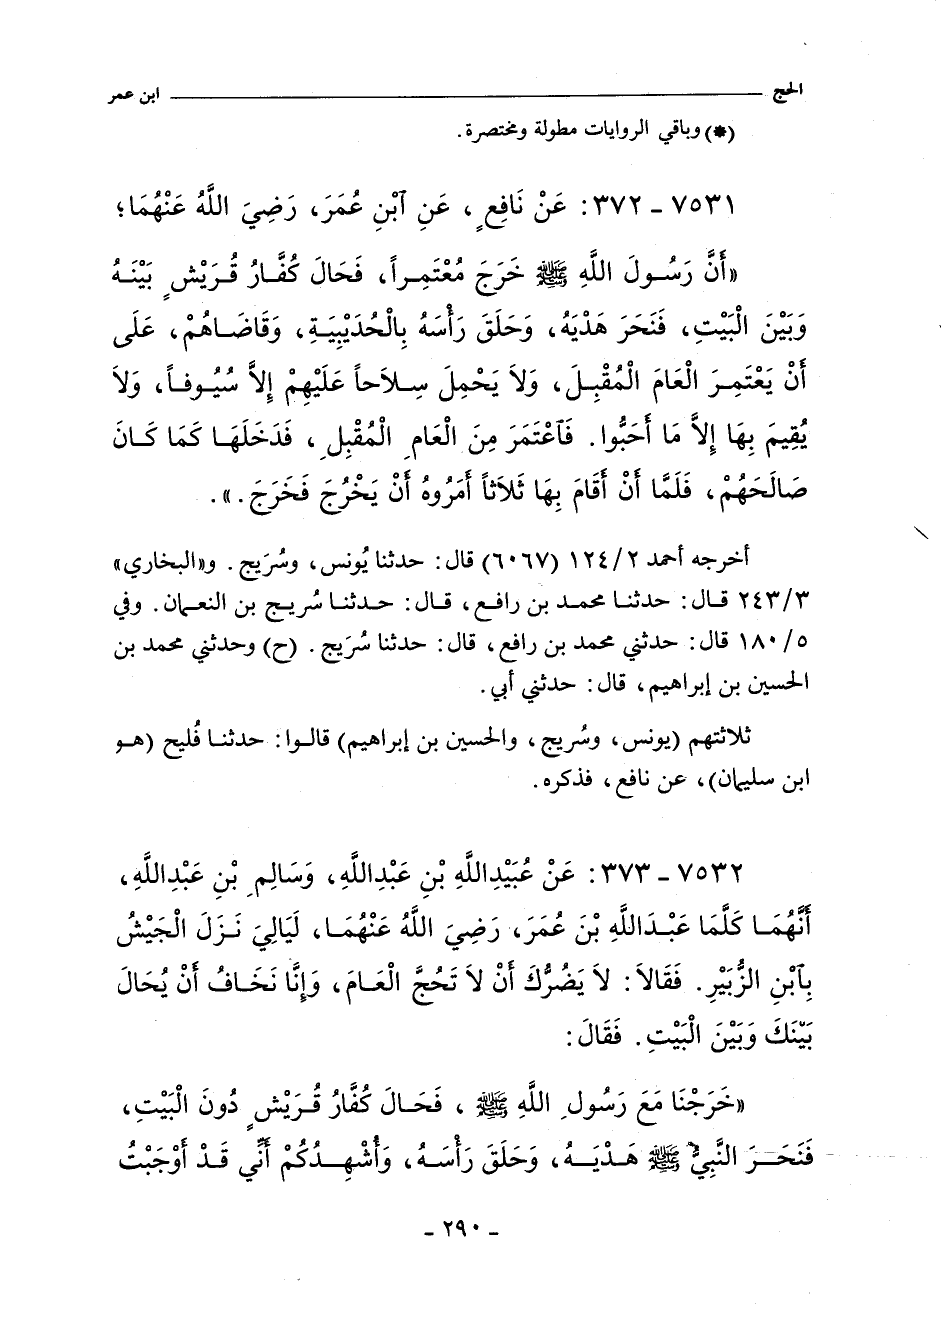 الحج ــــــــــــــــــــ ابن عمر
(*) وباقي الروايات مطولة ومختصرة.
٧٥٣١ - ٣٧٢: عَنْ نَافِعٍ، عَنِ آبْنِ عُمَرَ، رَضِيَ اللَّهُ عَنْهُمَا؛
«أَنَّ رَسُولَ اللَّهِ ﷺ خَرَجَ مُعْتَمِراً، فَحَالَ كُفَّارُ قُرَيْشٍ بَيْنَهُ
وَبَيْنَ الْبَيْتِ، فَنَحَرَ هَدْيَهُ، وَحَلَقَ رَأْسَهُ بِالْحُدَيْبِيَةِ، وَقَاضَاهُمْ، عَلَى
أَنْ يَعْتَمِرَ الْعَامَ الْمُقْبِلَ، وَلاَ يَحْمِلَ سِلاَحاً عَلَيْهِمْ إِلاَّ سُيُوفاً، وَلاَ
يُقِيمَ بِهَا إِلاَّ مَا أَحَبُّوا. فَآعْتَمَرَ مِنَ الْعَامِ الْمُقْبِلِ، فَدَخَلَهَا كَمَا كَانَ
صَالَحَهُمْ، فَلَمَّا أَنْ أَقَامَ بِهَا ثَلاَثاً أَمَرُوهُ أَنْ يَخْرُجَ فَخَرَجَ.».
أخرجه أحمد ١٢٤/٢ (٦٠٦٧) قال: حدثنا يُونس، وسُرَيج. و«البخاري»
٢٤٣/٣ قال: حدثنا محمد بن رافع، قال: حدثنا سُريج بن النعمان. وفي
١٨٠/٥ قال: حدثني محمد بن رافع، قال: حدثنا سُرَيج. (ح) وحدثني محمد بن
الحسين بن إبراهيم، قال: حدثني أبي.
ثلاثتهم (يونس، وسُريج، والحسين بن إبراهيم) قالوا: حدثنا فُليح (هو
ابن سليمان)، عن نافع، فذكره.
٧٥٣٢ - ٣٧٣: عَنْ عُبَيْدِاللَّهِ بْنِ عَبْدِاللَّهِ، وَسَالِمِ بْنِ عَبْدِاللَّهِ،
أَنَّهُمَا كَلَّمَا عَبْدَاللَّهِ بْنَ عُمَرَ، رَضِيَ اللَّهُ عَنْهُمَا، لَيَالِيَ نَزَلَ الْجَيْشُ
بِآبْنِ الزُّبَيْرِ. فَقَالاَ: لاَ يَضُرُّكَ أَنْ لاَ تَحُجَّ الْعَامَ، وَإِنَّا نَخَافُ أَنْ يُحَالَ
بَيْنَكَ وَبَيْنَ الْبَيْتِ. فَقَالَ:
«خَرَجْنَا مَعَ رَسُولِ اللَّهِ ﷺ، فَحَالَ كُفَّارُ قُرَيْشٍ دُونَ الْبَيْتِ،
فَنَحَرَ النَّبِيُّ ﷺ هَدْيَهُ، وَحَلَقَ رَأْسَهُ، وَأُشْهِدُكُمْ أَنِّي قَدْ أَوْجَبْتُ
- ٢٩٠ -